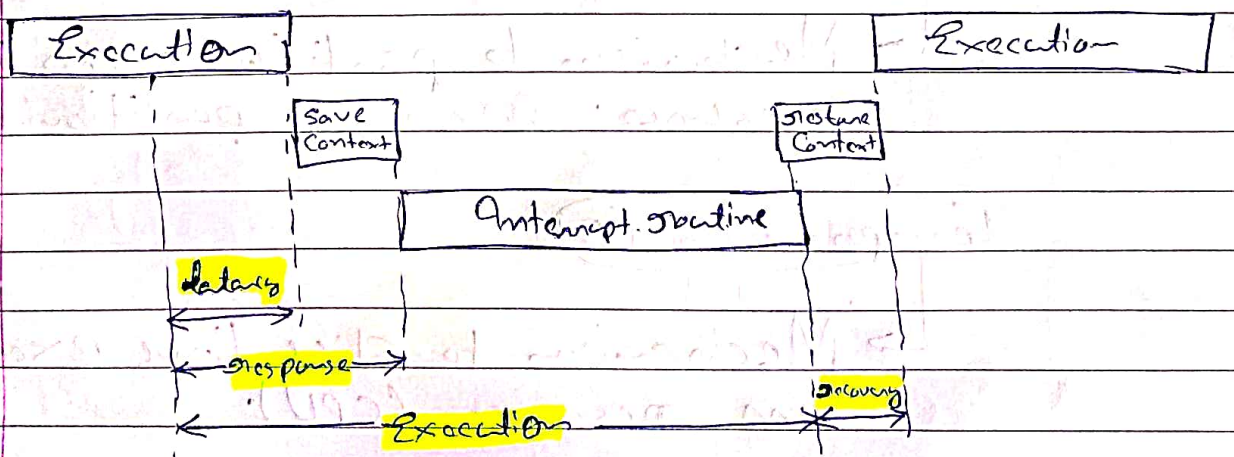 Execution
Execution
Save
Context
restore
Context
Interrupt routine
latency
response
recovery
Execution